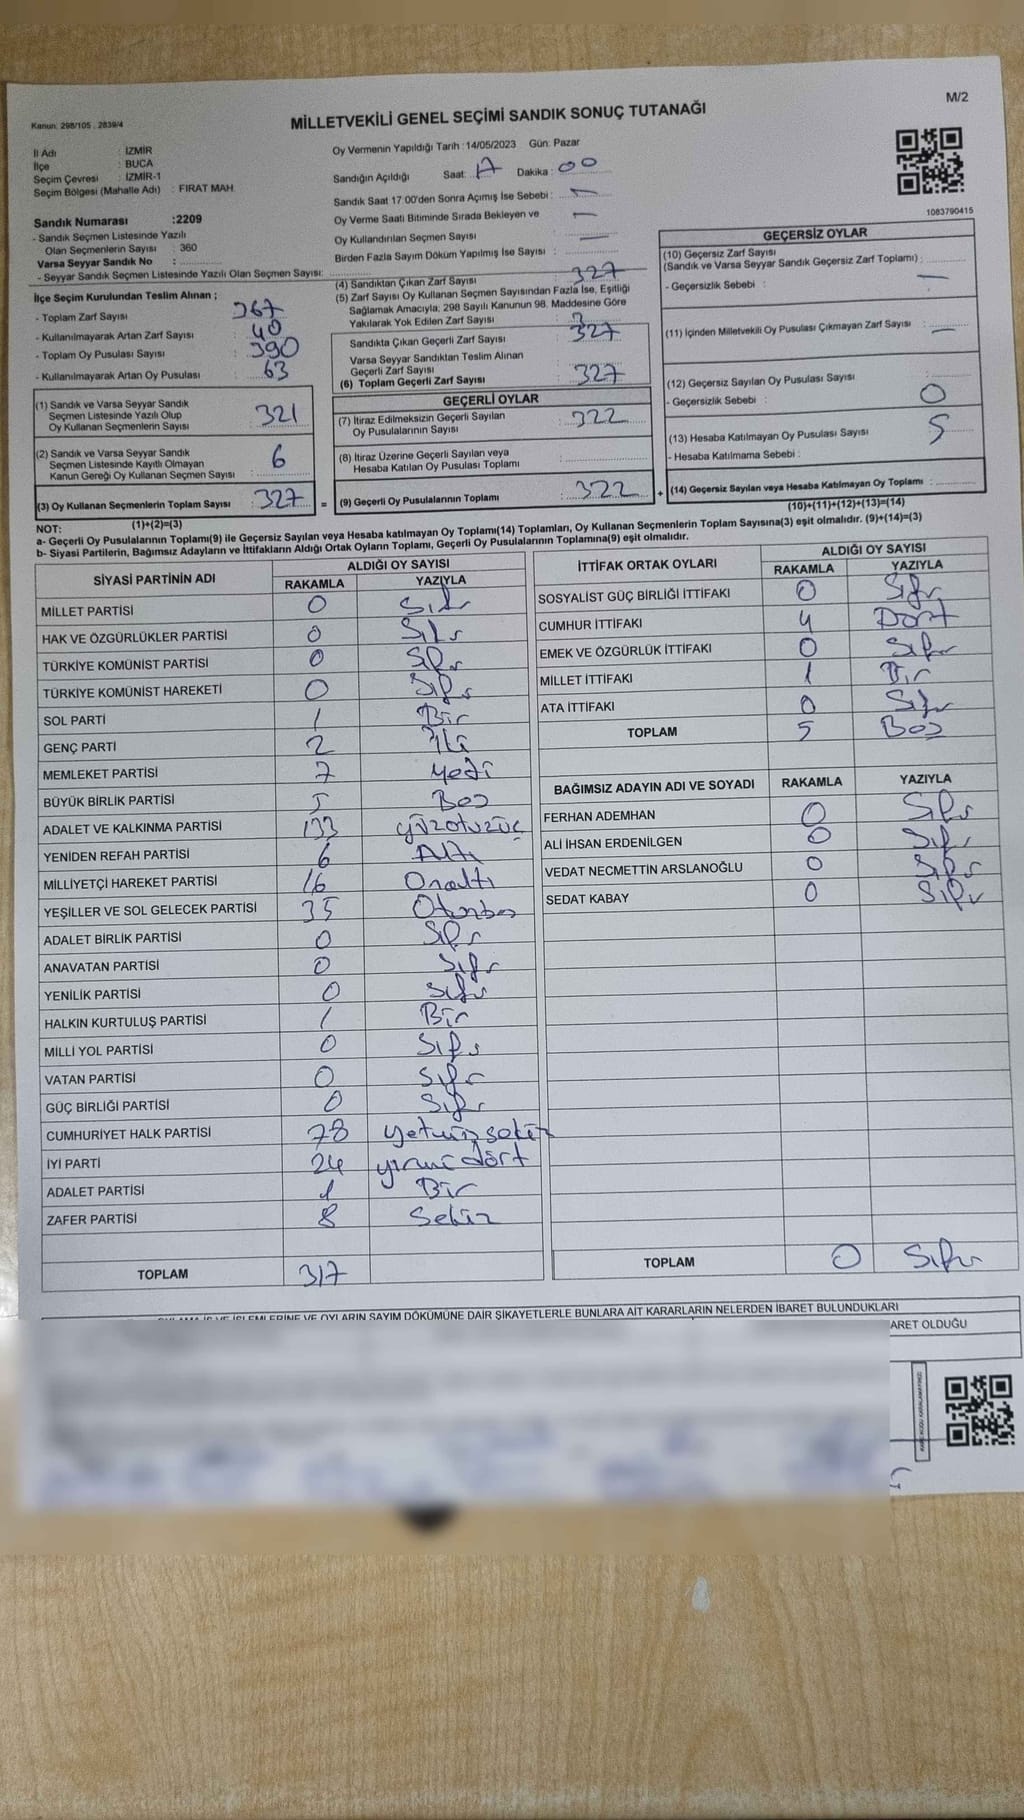 M/2
Kanun: 298/105 , 2839/4
MİLLETVEKİLİ GENEL SEÇİMİ SANDIK SONUÇ TUTANAĞI
İl Adı : İZMİR
İlçe : BUCA
Seçim Çevresi : İZMİR-1
Seçim Bölgesi (Mahalle Adı) : FIRAT MAH.
Sandık Numarası :2209
- Sandık Seçmen Listesinde Yazılı
Olan Seçmenlerin Sayısı : 360
Varsa Seyyar Sandık No :
- Seyyar Sandık Seçmen Listesinde Yazılı Olan Seçmen Sayısı:
Oy Vermenin Yapıldığı Tarih :14/05/2023 Gün: Pazar
Sandığın Açıldığı Saat: 17 Dakika: 00
Sandık Saat 17:00'den Sonra Açımış İse Sebebi : —
Oy Verme Saati Bitiminde Sırada Bekleyen ve —
Oy Kullandırılan Seçmen Sayısı : —
Birden Fazla Sayım Döküm Yapılmış İse Sayısı :
1083790415
İlçe Seçim Kurulundan Teslim Alınan ;
- Toplam Zarf Sayısı : 367
- Kullanılmayarak Artan Zarf Sayısı : 40
- Toplam Oy Pusulası Sayısı : 390
- Kullanılmayarak Artan Oy Pusulası : 63
(1) Sandık ve Varsa Seyyar Sandık
Seçmen Listesinde Yazılı Olup
Oy Kullanan Seçmenlerin Sayısı : 321
(2) Sandık ve Varsa Seyyar Sandık
Seçmen Listesinde Kayıtlı Olmayan
Kanun Gereği Oy Kullanan Seçmen Sayısı : 6
(3) Oy Kullanan Seçmenlerin Toplam Sayısı : 327 =
(1)+(2)=(3)
(4) Sandıktan Çıkan Zarf Sayısı : 327
(5) Zarf Sayısı Oy Kullanan Seçmen Sayısından Fazla İse, Eşitliği
Sağlamak Amacıyla, 298 Sayılı Kanunun 98. Maddesine Göre
Yakılarak Yok Edilen Zarf Sayısı :
Sandıkta Çıkan Geçerli Zarf Sayısı : 327
Varsa Seyyar Sandıktan Teslim Alınan
Geçerli Zarf Sayısı :
(6) Toplam Geçerli Zarf Sayısı : 327
GEÇERLİ OYLAR
(7) İtiraz Edilmeksizin Geçerli Sayılan
Oy Pusulalarının Sayısı : 322
(8) İtiraz Üzerine Geçerli Sayılan veya
Hesaba Katılan Oy Pusulası Toplamı :
(9) Geçerli Oy Pusulalarının Toplamı : 322 +
GEÇERSİZ OYLAR
(10) Geçersiz Zarf Sayısı
(Sandık ve Varsa Seyyar Sandık Geçersiz Zarf Toplamı) :
- Geçersizlik Sebebi : —
(11) İçinden Milletvekili Oy Pusulası Çıkmayan Zarf Sayısı : —
(12) Geçersiz Sayılan Oy Pusulası Sayısı :
- Geçersizlik Sebebi : 0
(13) Hesaba Katılmayan Oy Pusulası Sayısı : 5
- Hesaba Katılmama Sebebi :
(14) Geçersiz Sayılan veya Hesaba Katılmayan Oy Toplamı :
(10)+(11)+(12)+(13)=(14)
NOT:
a- Geçerli Oy Pusulalarının Toplamı(9) ile Geçersiz Sayılan veya Hesaba katılmayan Oy Toplamı(14) Toplamları, Oy Kullanan Seçmenlerin Toplam Sayısına(3) eşit olmalıdır. (9)+(14)=(3)
b- Siyasi Partilerin, Bağımsız Adayların ve İttifakların Aldığı Ortak Oyların Toplamı, Geçerli Oy Pusulalarının Toplamına(9) eşit olmalıdır.
SİYASİ PARTİNİN ADI ALDIĞI OY SAYISI
RAKAMLA YAZIYLA
MİLLET PARTİSİ 0 Sıfır
HAK VE ÖZGÜRLÜKLER PARTİSİ 0 Sıfır
TÜRKİYE KOMÜNİST PARTİSİ 0 Sıfır
TÜRKİYE KOMÜNİST HAREKETİ 0 Sıfır
SOL PARTİ 1 Bir
GENÇ PARTİ 2 İki
MEMLEKET PARTİSİ 7 Yedi
BÜYÜK BİRLİK PARTİSİ 5 Beş
ADALET VE KALKINMA PARTİSİ 133 yüzotuzüç
YENİDEN REFAH PARTİSİ 6 Altı
MİLLİYETÇİ HAREKET PARTİSİ 16 Onaltı
YEŞİLLER VE SOL GELECEK PARTİSİ 35 Otuzbeş
ADALET BİRLİK PARTİSİ 0 Sıfır
ANAVATAN PARTİSİ 0 Sıfır
YENİLİK PARTİSİ 0 Sıfır
HALKIN KURTULUŞ PARTİSİ 1 Bir
MİLLİ YOL PARTİSİ 0 Sıfır
VATAN PARTİSİ 0 Sıfır
GÜÇ BİRLİĞİ PARTİSİ 0 Sıfır
CUMHURİYET HALK PARTİSİ 78 yetmişsekiz
İYİ PARTİ 24 yirmidört
ADALET PARTİSİ 1 Bir
ZAFER PARTİSİ 8 Sekiz
TOPLAM 317
İTTİFAK ORTAK OYLARI ALDIĞI OY SAYISI
RAKAMLA YAZIYLA
SOSYALİST GÜÇ BİRLİĞİ İTTİFAKI 0 Sıfır
CUMHUR İTTİFAKI 4 Dört
EMEK VE ÖZGÜRLÜK İTTİFAKI 0 Sıfır
MİLLET İTTİFAKI 1 Bir
ATA İTTİFAKI 0 Sıfır
TOPLAM 5 Beş
BAĞIMSIZ ADAYIN ADI VE SOYADI RAKAMLA YAZIYLA
FERHAN ADEMHAN 0 Sıfır
ALİ İHSAN ERDENİLGEN 0 Sıfır
VEDAT NECMETTİN ARSLANOĞLU 0 Sıfır
SEDAT KABAY 0 Sıfır
TOPLAM 0 Sıfır
İŞLEMLERİNE VE OYLARIN SAYIM DÖKÜMÜNE DAİR ŞİKAYETLERLE BUNLARA AİT KARARLARIN NELERDEN İBARET BULUNDUKLARI
ARET OLDUĞU